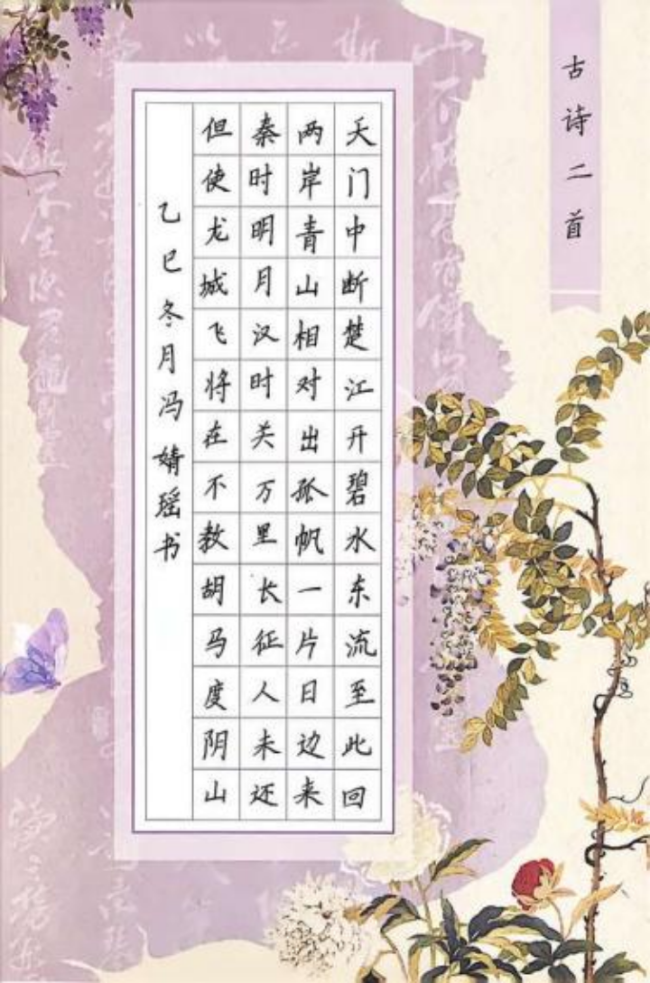 古诗二首
天门中断楚江开碧水东流至此回
两岸青山相对出孤帆一片日边来
秦时明月汉时关万里长征人未还
但使龙城飞将在不教胡马度阴山
乙巳冬月冯婧瑶书